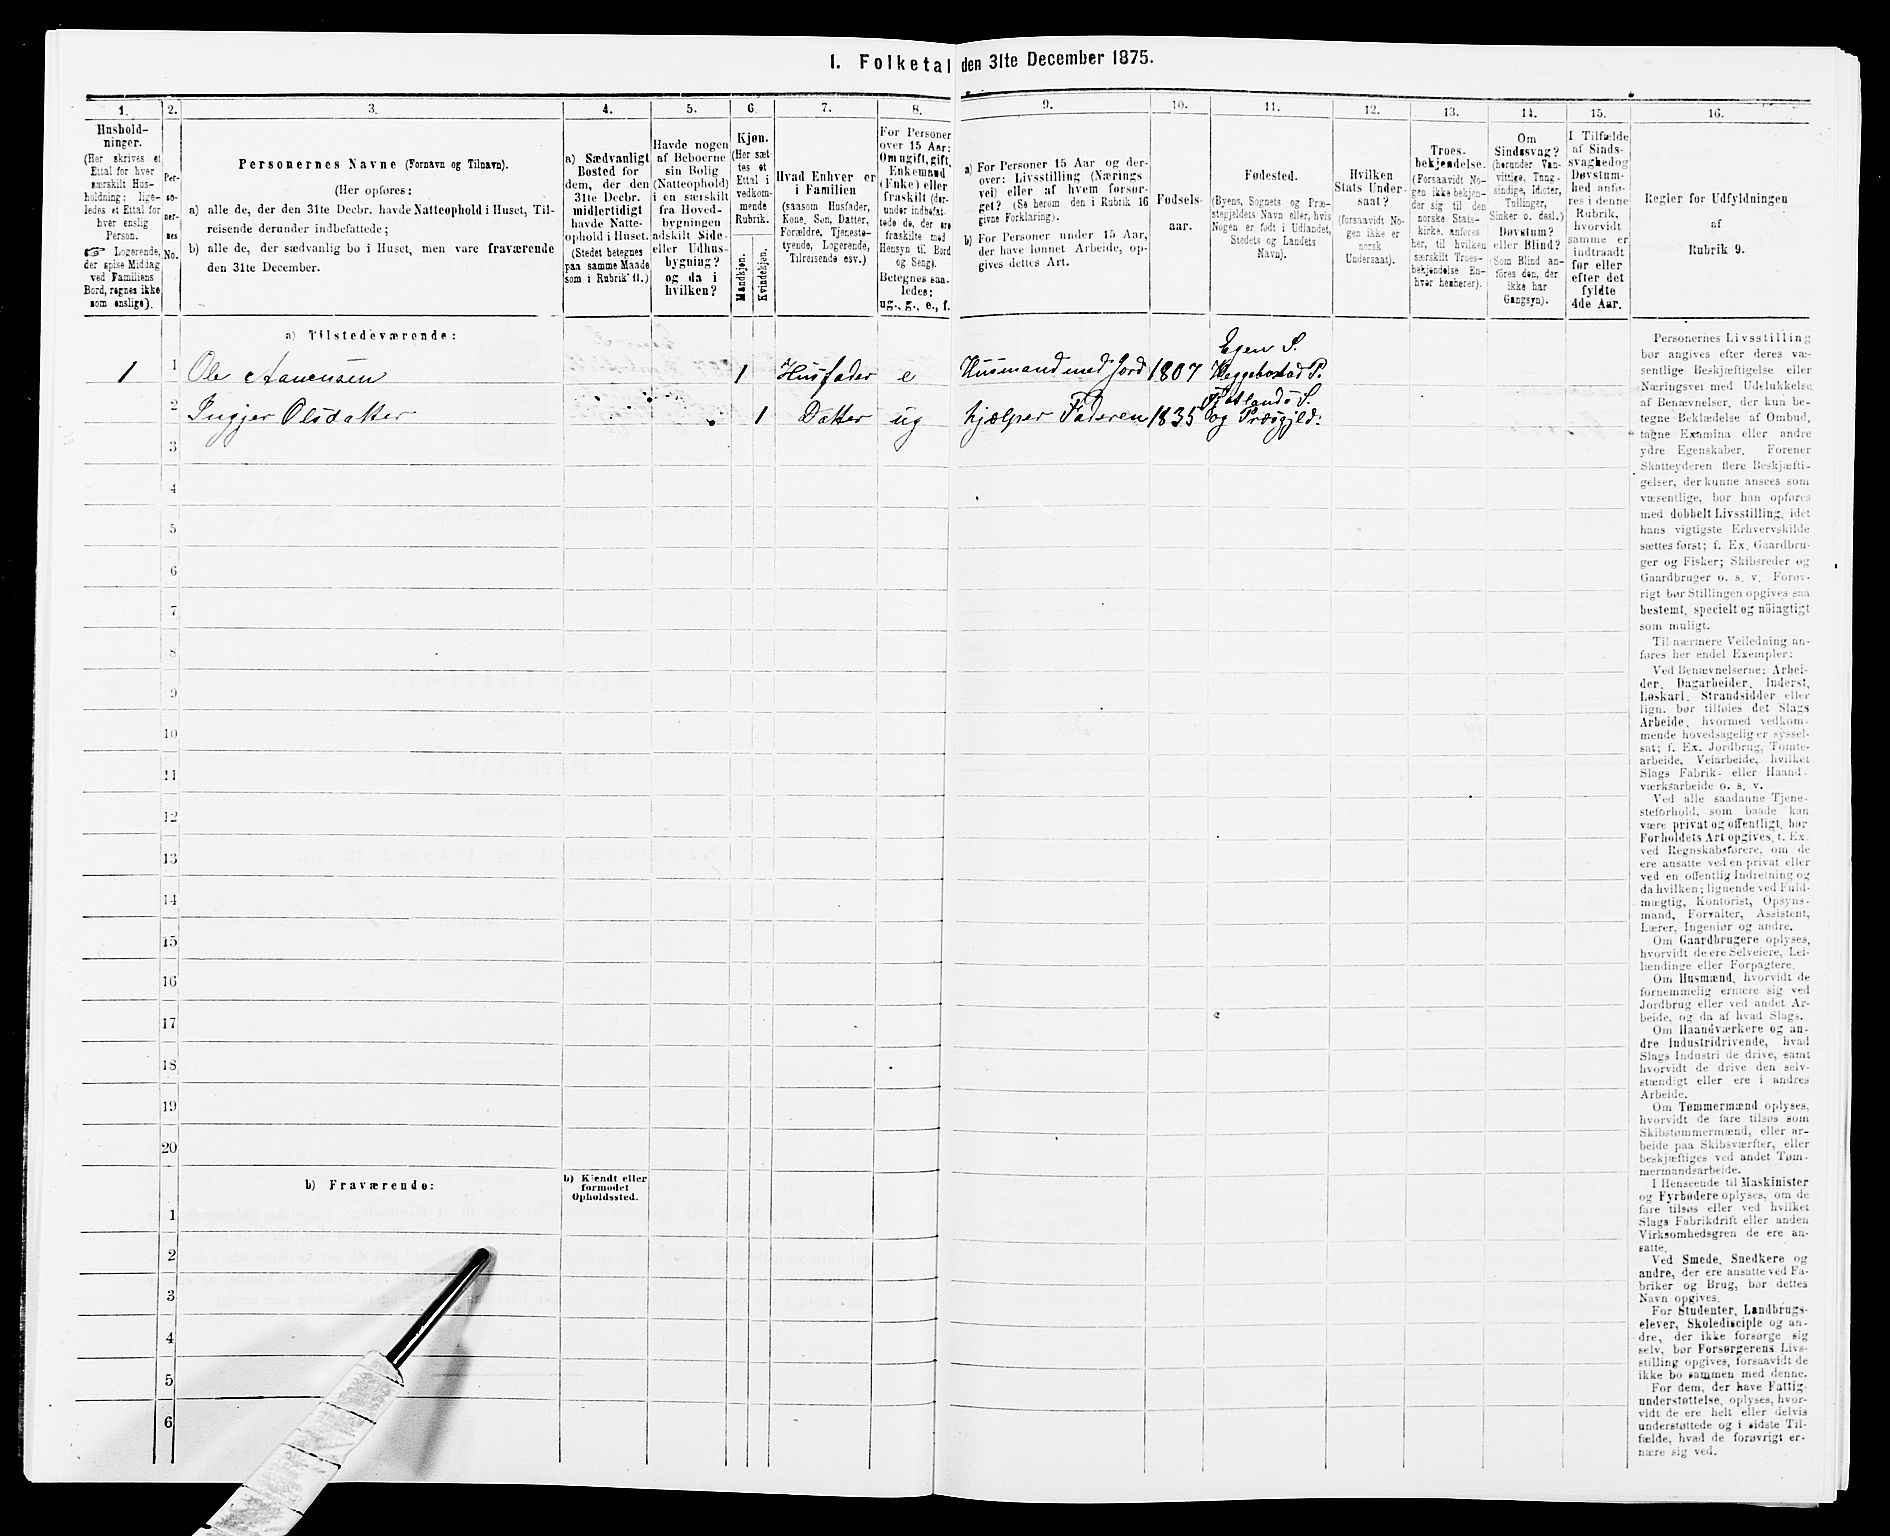 1. Folketal den 31te December 1875.
1.
Hushold-
ninger.
(Her skrives et
Ettal for hver
særskilt Hus-
holdning; lige-
ledes et Ettal for
hver enslig
Person.
☞ Logerende,
der spise Middag
ved Familiens
Bord, regnes ikke
som enslige).
2.
Per-
so-
ner-
nes
No.
3.
Personernes Navne (Fornavn og Tilnavn).
(Her opføres:
a) alle de, der den 31te Decbr. havde Natteophold i Huset, Til-
reisende derunder indbefattede;
b) alle de, der sædvanlig bo i Huset, men vare fraværende
den 31te December.
4.
a) Sædvanligt
Bosted for
dem, der den
31te Decbr.
midlertidigt
havde Natte-
ophold i Huset.
(Stedet betegnes
paa samme Maade
som i Rubrik 11.)
5.
Havde nogen
af Beboerne
sin Bolig
(Natteophold)
i en særskilt
fra Hoved-
bygningen
adskilt Side-
eller Udhus-
bygning?
og da i
hvilken?
6.
Kjøn.
(Her sæt
tes et
Ettal i
vedkom-
mende
Rubrik.
Mandkjøn.
Kvindekjøn.
7.
Hvad Enhver er
i Familien
(saasom Husfader,
Kone, Søn, Datter,
Forældre, Tjeneste-
tyende, Logerende,
Tilreisende osv.)
8.
For Personer
over 15 Aar:
Om ugift, gift,
Enkemand
(Enke) eller
fraskilt (der-
under indbefat-
tede de, der ere
fraskilte med
Hensyn til Bord
og Seng).
Betegnes saa-
ledes:
ug., g., e., f.
9.
a) For Personer 15 Aar og der-
over: Livsstilling (Nærings
vei) eller af hvem forsør-
get? (Se herom den i Rubrik 16
givne Forklaring).
b) For Personer under 15 Aar,
der have lønnet Arbeide, op-
gives dettes Art.
10.
Fødsels-
aar.
11.
Fødested.
(Byens, Sognets og Præ-
stegjeldets Navn eller, hvis
Nogen er født i Udlandet,
Stedets og Landets
Navn).
12.
Hvilken
Stats Under-
saat?
(forsaavidt No-
gen ikke er
norsk
Undersaat).
13.
Troes-
bekjendelse.
(Forsaavidt No-
gen ikke bekjen-
der sig til den
norske Stats-
kirke, anføres
her, til hvilken
særskilt Troes-
bekjendelse En-
hver henhører).
14.
Om
Sindssvag?
(herunder Van-
vittige, Tung-
sindige, Idioter,
Tullinger,
Sinker o. desl.)
Døvstum?
eller Blind?
(Som Blind an-
føres den, der
ikke har
Gangsyn).
15.
I Tilfælde
af Sinds-
svaghed og
Døvstum-
hed anfø-
res i denne
Rubrik,
hvorvidt
samme er
indtraadt
før eller
efter det
fyldte
4de Aar.
16.
Regler for Udfyldningen
af
Rubrik 9.
a) Tilstedeværende:
1 1 Ole Aanensen 1 Husfader e Husmand med Jord 1807 Egen S.
Heggebostad P.
2 Ingjer Olsdatter 1 Datter ug hjælper Faderen 1835 Fjotlands S.
og Præsgjeld.
3
4
5
6
7
8
9
10
11
12
13
14
15
16
17
18
19
20
b) Fraværende:
b) Kjendt eller
formodet
Opholdssted.
1
2
3
4
5
6
Personernes Livsstilling
bør angives efter deres væ-
sentlige Beskjæftigelse eller
Næringsvei med Udelukkelse
af Benævnelser, der kun be-
tegne Beklædelse af Ombud,
tagne Examina eller andre
ydre Egenskaber. Forener
Skatteyderen flere Beskjæfti-
gelser, der kunne ansees som
væsentlige, bør han opføres
med dobbelt Livsstilling, idet
hans vigtigste Erhvervskilde
sættes først; f. Ex. Gaardbru-
ger og Fisker; Skibsreder og
Gaardbruger o. s. v. Forøv-
rigt bør Stillingen opgives saa
bestemt, specielt og nöiagtigt
som muligt.
Til nærmere Veiledning an-
føres her endel Exempler:
Ved Benævnelserne: Arbei-
der, Dagarbeider, Inderst,
Løskarl, Strandsidder eller
lign. bør tilføies det Slags
Arbeide, hvormed vedkom-
mende hovedsagelig er syssel-
sat; f. Ex. Jordbrug, Tomte-
arbeide, Veiarbeide, hvilket
Slags Fabrik- eller Haand-
værksarbeide o. s. v.
Ved alle saadanne Tjene-
steforhold, som baade kan
være privat og offentligt, bør
Forholdets Art opgives, t. Ex.
ved Regnskabsførere, om de
ere ansatte ved en privat eller
ved en offentlig Indretning og
da hvilken; lignende ved Fuld-
mægtig, Kontorist, Opsyns-
mand, Forvalter, Assistent,
Lærer, Ingeniør og andre.
Om Gaardbrugere oplyses,
hvorvidt de ere Selveiere, Lei-
lændinge eller Forpagtere.
Om Husmænd, hvorvidt de
fornemmelig ernære sig ved
Jordbrug eller ved andet Ar-
beide, og da af hvad Slags.
Om Haandværkere og an-
dre Industridrivende, hvad
Slags Industri de drive, samt
hvorvidt de drive den selv-
stændigt eller ere i andres
Arbeide.
Om Tømmermænd oplyses,
hvorvidt de fare tilsøs som
Skibstømmermænd, eller ar-
beide paa Skibsværfter, eller
beskjæftiges ved andet Tøm-
mermandsarbeide.
I Henseende til Maskinister
og Fyrbødere oplyses, om de
fare tilsøs eller ved hvilket
Slags Fabrikdrift eller anden
Virksomhedsgren de ere an-
satte.
Ved Smede, Snedkere og
andre, der ere ansatte ved Fa-
briker og Brug, bør dettes
Navn opgives.
For Studenter, Landbrugs-
elever, Skoledisciple og an-
dre, der ikke forsørge sig
selv, bør Forsørgerens Livs-
stilling opgives, forsaavidt de
ikke bo sammen med denne.
For dem, der have Fattig-
understøttelse, oplyses, hvor-
vidt de ere helt eller delvis
understøttede og i sidste Til-
fælde, hvad de forøvrigt er-
nære sig ved.